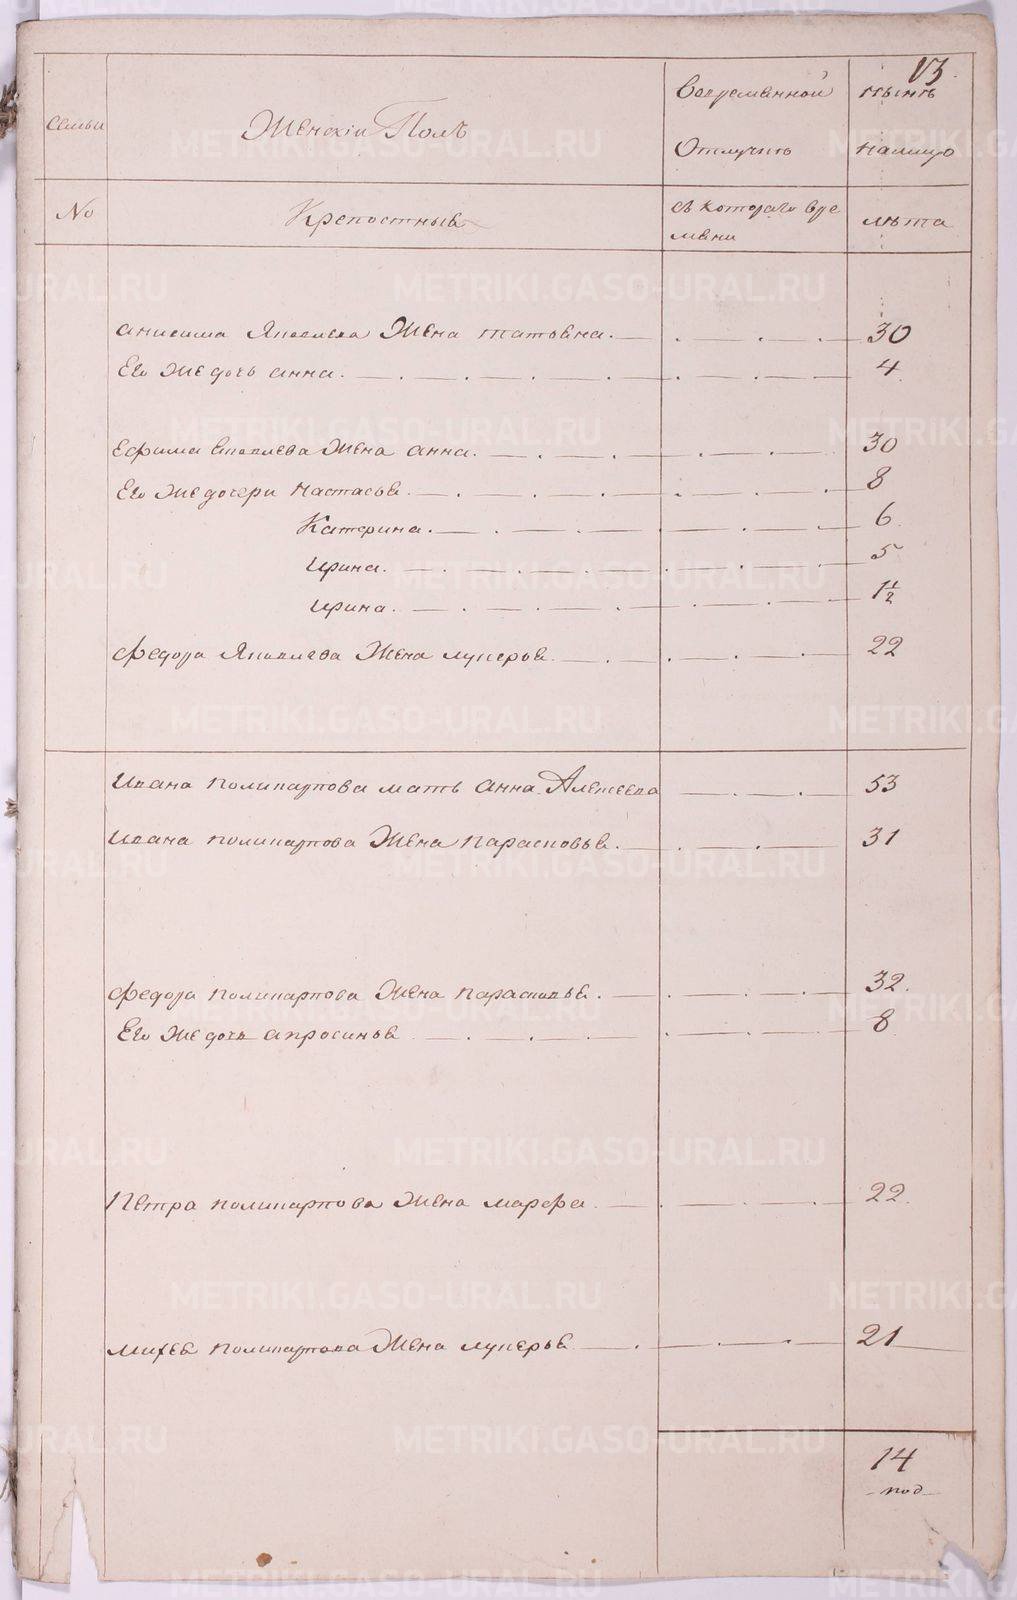 13.
Семьи
Женскiй Полъ
Вовременной
Отлучкъ
Нынъ
налицо
No
Крепостныя
съ котораго вре
мени
лѣта
анисима Яковлева Жена татьяна. 30
Его же дочь анна. 4
Ефима Яковлева Жена анна. 30
Его же дочери настасья. 8
Катерина. 6
ирина. 5
ирина. 1 1/2
федора Яковлева Жена лукерья. 22
ивана поликарпова мать анна Алексеева 53
ивана поликарпова Жена парасковья. 31
федора поликарпова Жена парасковья. 32.
Его же дочь апросинья 8
Петра поликарпова Жена марфа. 22.
михея поликарпова Жена лукерья 21
14
METRIKI.GASO-URAL.RU